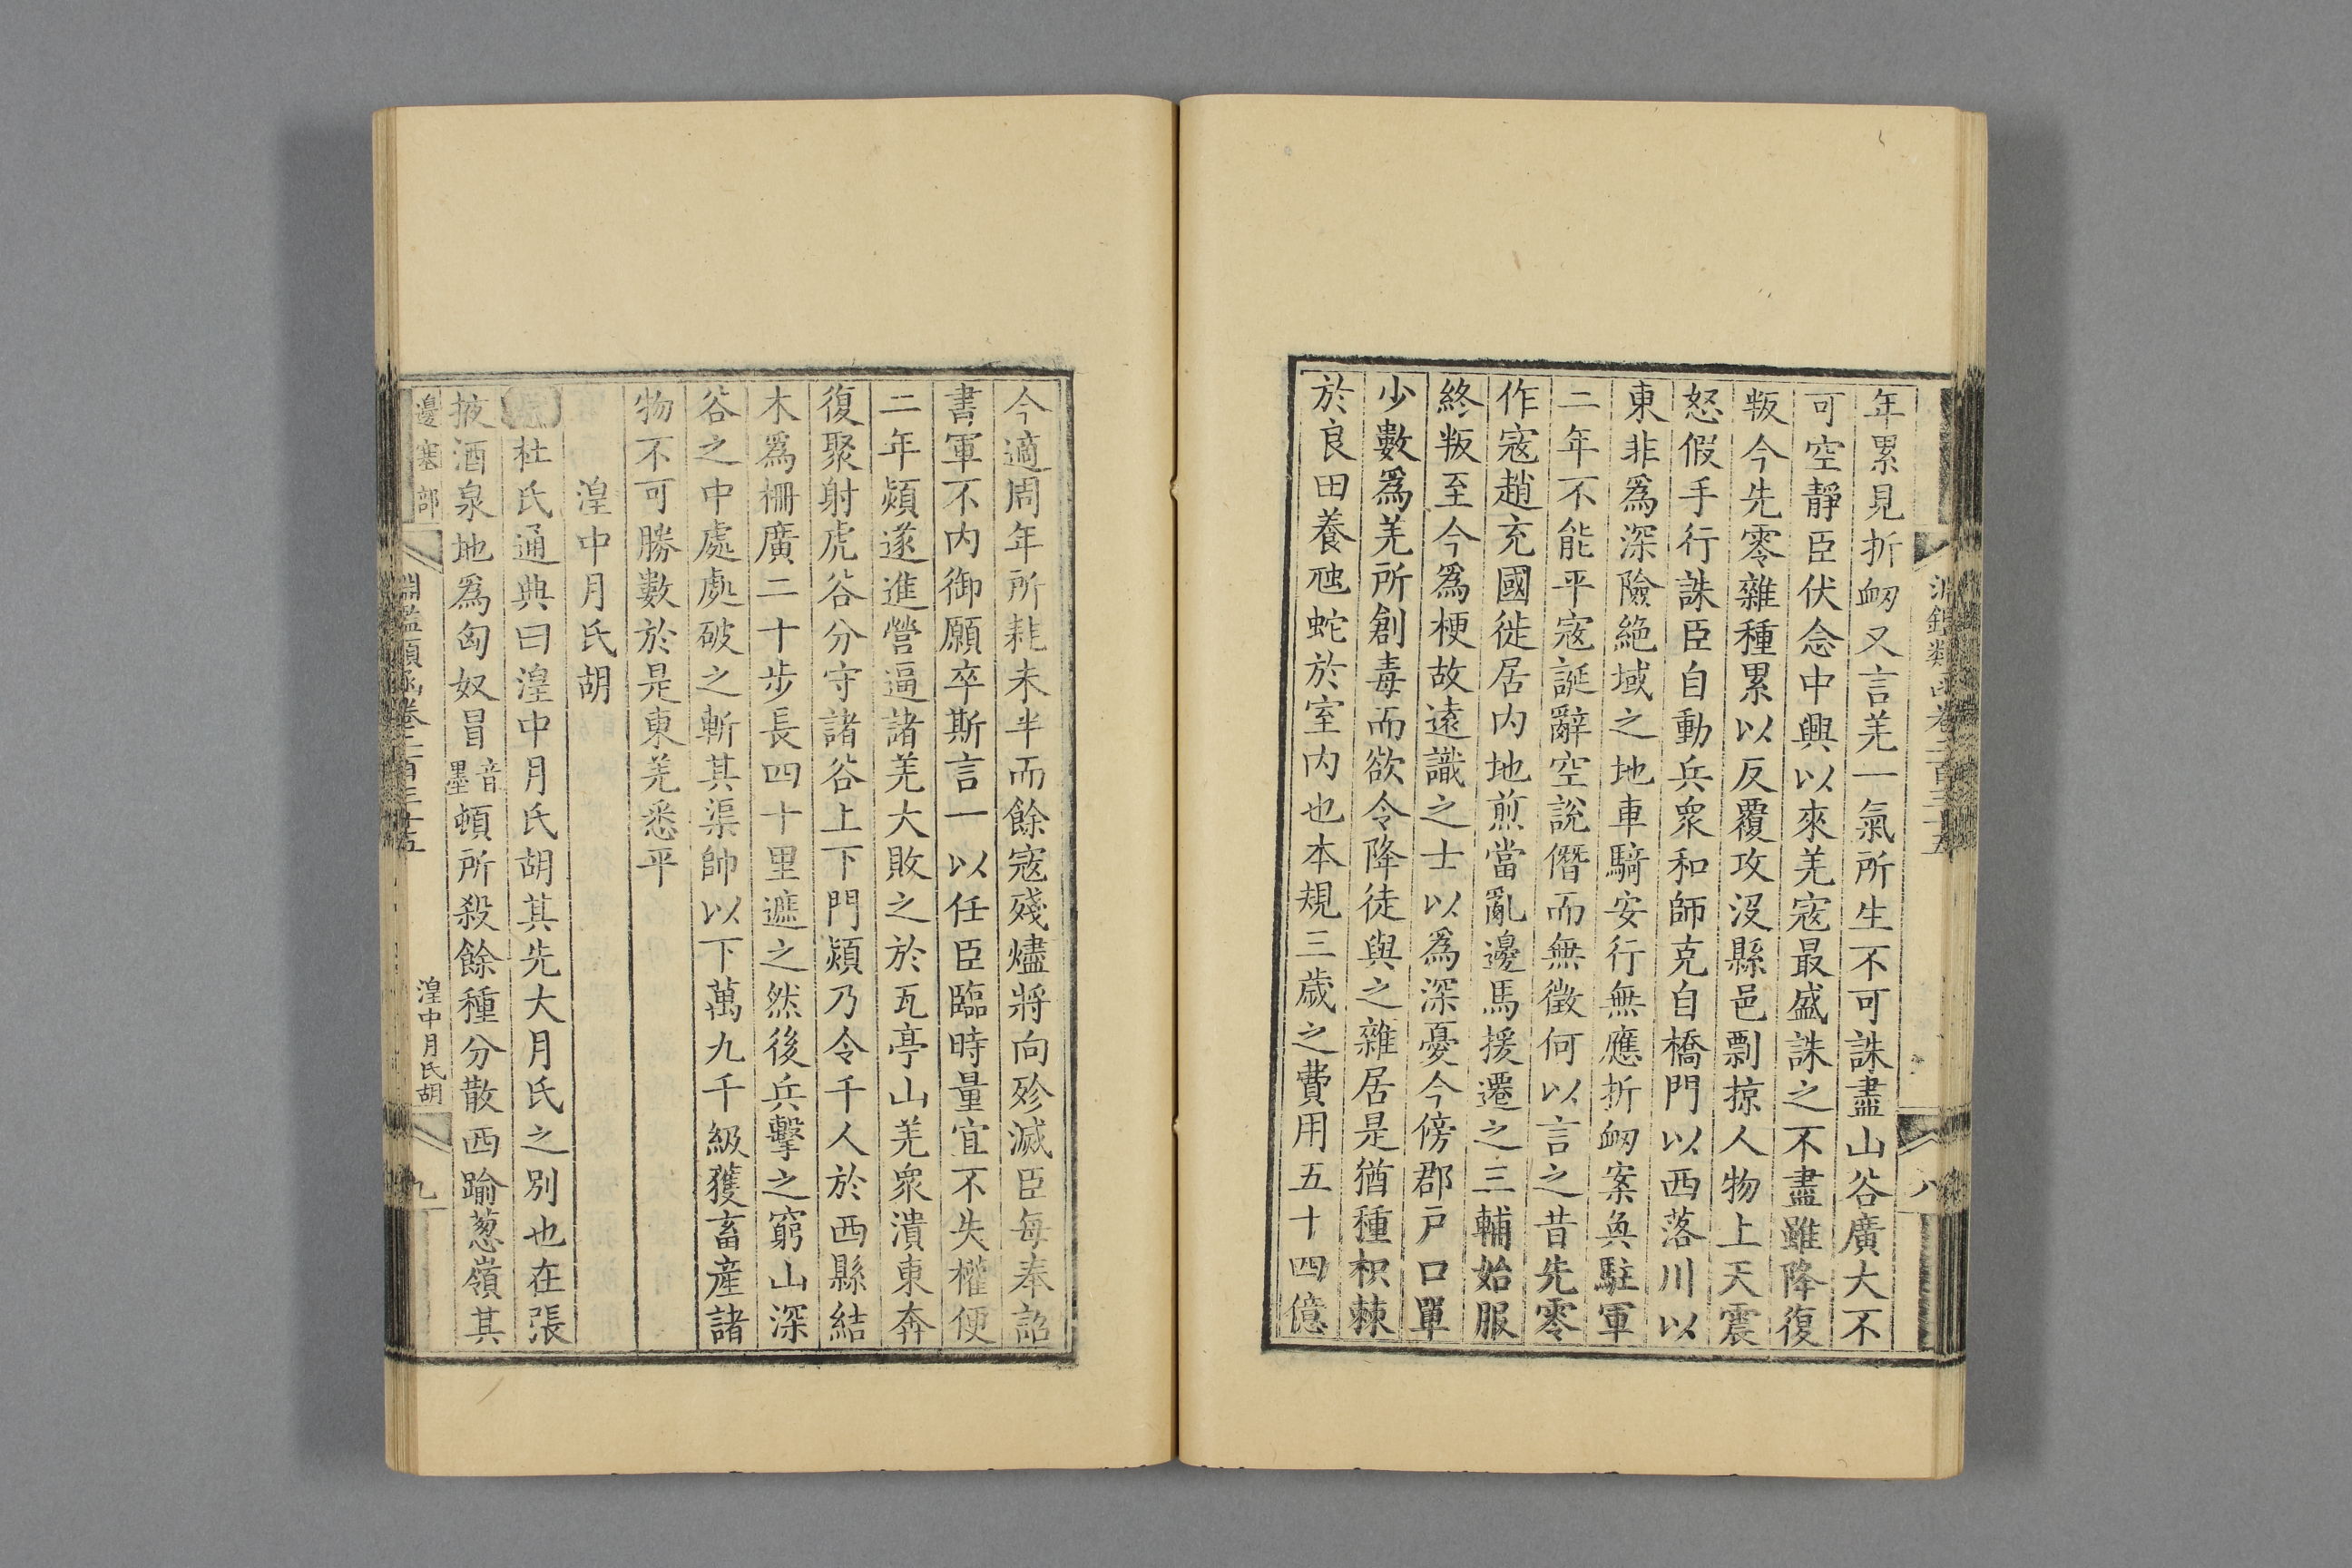 淵鑑類函卷二百三十五
八
年累見折衂又言羌一氣所生不可誅盡山谷廣大不
可空靜臣伏念中興以來羌寇最盛誅之不盡雖降復
叛今先零雜種累以反覆攻沒縣邑剽掠人物上天震
怒假手行誅臣自動兵衆和師克自橋門以西落川以
東非爲深險絶域之地車騎安行無應折衂案奐駐軍
二年不能平寇誕辭空說僭而無徵何以言之昔先零
作寇趙充國徙居内地煎當亂邊馬援遷之三輔始服
終叛至今爲梗故遠識之士以爲深憂今傍郡戸口單
少數爲羌所創毒而欲令降徒與之雜居是猶種枳棘
於良田養虺蛇於室内也本規三歲之費用五十四億
今適周年所耗未半而餘寇殘燼將向殄滅臣每奉詔
書軍不内御願卒斯言一以任臣臨時量宜不失權便
二年熲遂進營逼諸羌大敗之於瓦亭山羌衆潰東奔
復聚射虎谷分守諸谷上下門熲乃令千人於西縣結
木爲柵廣二十步長四十里遮之然後兵擊之窮山深
谷之中處處破之斬其渠帥以下萬九千級獲畜産諸
物不可勝數於是東羌悉平
湟中月氏胡
杜氏通典曰湟中月氏胡其先大月氏之別也在張
掖酒泉地爲匈奴冒音墨頓所殺餘種分散西踰葱嶺其
邊塞部
淵鑑類函卷二百三十五
湟中月氏胡
九